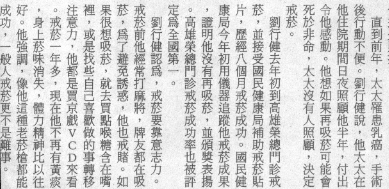 直到前年，太太罹患乳癌，手術
後行動不便。劉行健說，他太太在
他住院期間日夜照顧他半年，付出
令他感動。他想如果再吸菸可能會
死於非命，太太沒有人照顧，決定
戒菸。
劉行健去年初到高雄榮總門診戒
菸，並接受國民健康局補助戒菸貼
片，歷經八個月戒菸成功。國民健
康局今年初用儀器追蹤他戒菸成果
，證明他沒有再吸菸，並頒獎表揚
。高雄榮總門診戒菸成功率也被評
定為全國第一。
劉行健認為，戒菸要靠意志力。
戒菸前他經常打麻將，牌友都在吸
菸，為了避免誘惑，他也戒賭。如
果很想吸菸，就去買點喉糖含在嘴
裡，或是找些自己喜歡做的事轉移
注意力，他都是買京戲VCD來看
。戒菸一年多，現在他不再有黃痰
，身上菸味消失，體力精神比以往
好。他強調，像他這種老菸槍都能
成功，一般人戒菸更不是難事。